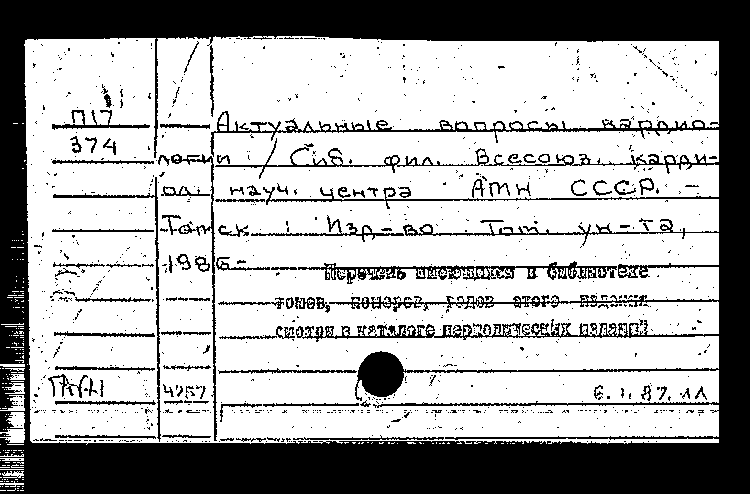 П17
374
Актуальные вопросы кардио-
логии / Сиб. фил. Всесоюз. карди-
ол. науч. центра АМН СССР. -
Томск : Изд-во Том. ун-та,
1986-
Перечень имеющихся в библиотеке
томов, номеров, годов этого издания
смотри в каталоге периодических изданий
4257
6.1.87.